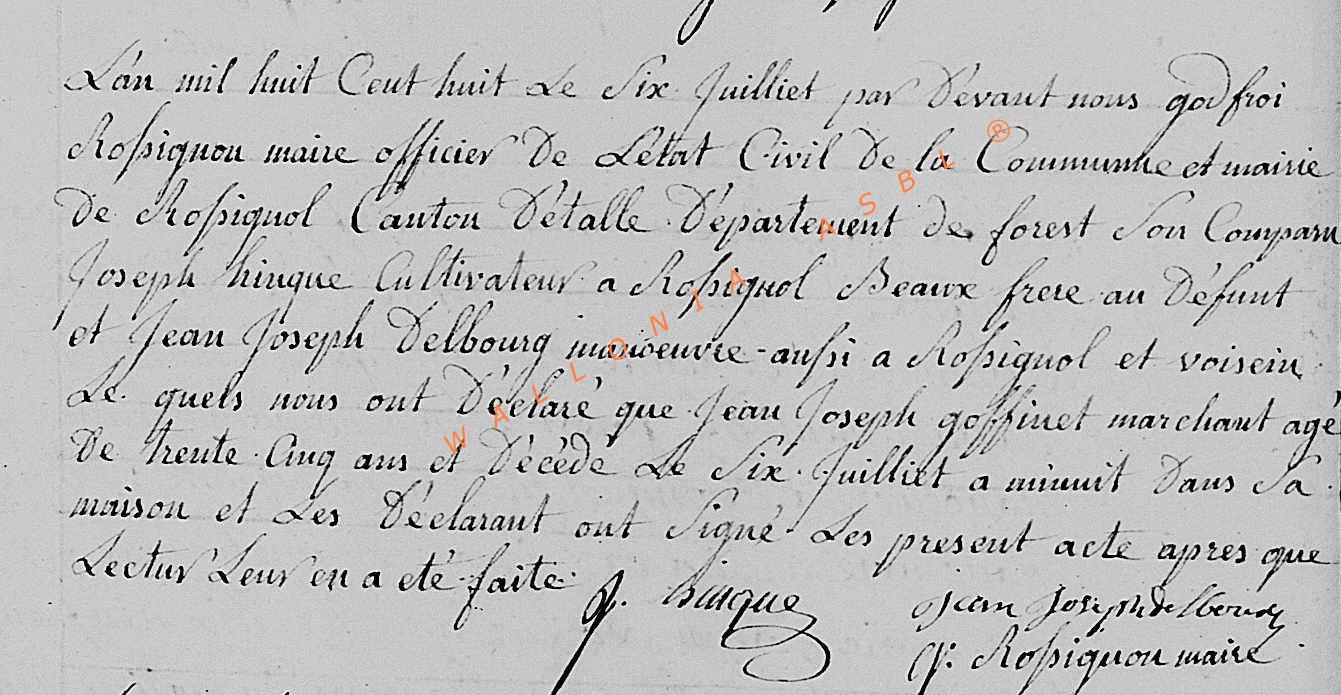 L'an mil huit Cent huit Le Six Juilliet par Dévant nous godfroi
Rossignon maire officier De Létat Civil De la Communne et mairie
De Rossignol Canton D'étalle Département de forest Son Comparu
Joseph hinque Cultivateur a Rossignol Beaux frere au Défunt
et Jean Joseph Delbourg manoeuvre aussi a Rossignol et voisein
Le quels nous ont Déclaré que Jean Joseph goffinet marchant agé
De trente Cinq ans et Décédé Le Six Juilliet a minuit Dans Sa
maison et Les Déclarant ont Signé Les present acte apres que
Lectur Leur en a eté faite.
J. hinque
Jean Joseph delbourg
g: Rossignon maire
WALLONIA ASBL ®